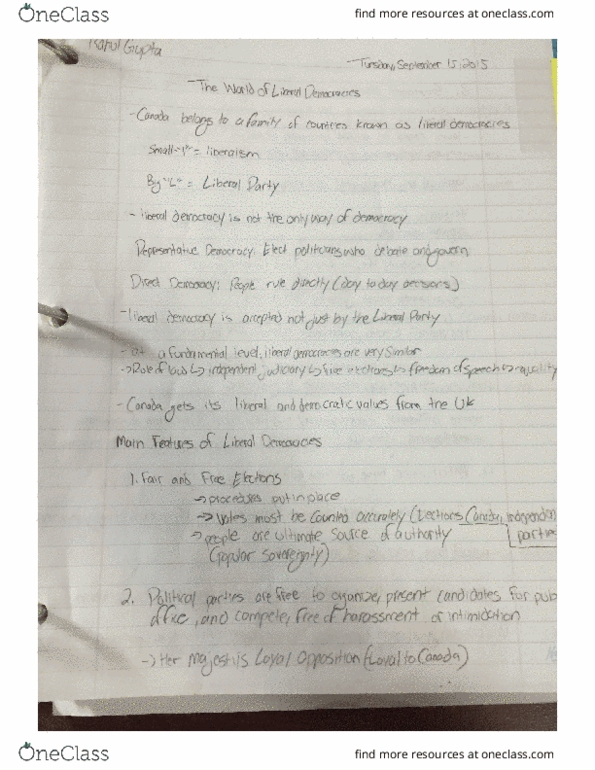 OneClass
find more resources at oneclass.com
Rahul Gupta
-Tuesday, September 15, 2015
-The World of Liberal Democracies
-Canada belongs to a family of countries known as liberal democracies
Small-"l" = liberalism
Big "L" = Liberal Party
-liberal democracy is not the only way of democracy
Representative Democracy: Elect politicians who debate and govern
Direct Democracy: People rule directly (day to day decisions)
-liberal democracy is accepted not just by the Liberal Party
-at a fundamental level, liberal democracies are very similar
->Rule of law ↳ independent judiciary ↳ free elections ↳ freedom of speech ↳ equality
-Canada gets its liberal and democratic values from the UK
Main Features of Liberal Democracies
1. Fair and Free Elections
-> procedures put in place
-> votes must be counted accurately (Elections Canada, independent
-> people are ultimate source of authority
(popular sovereignty)
2. Political parties are free to organize, present candidates for pub
office, and compete, free of harassment or intimidation
-> Her Majestis Loyal Opposition (Loyal to Canada)
OneClass
find more resources at oneclass.com